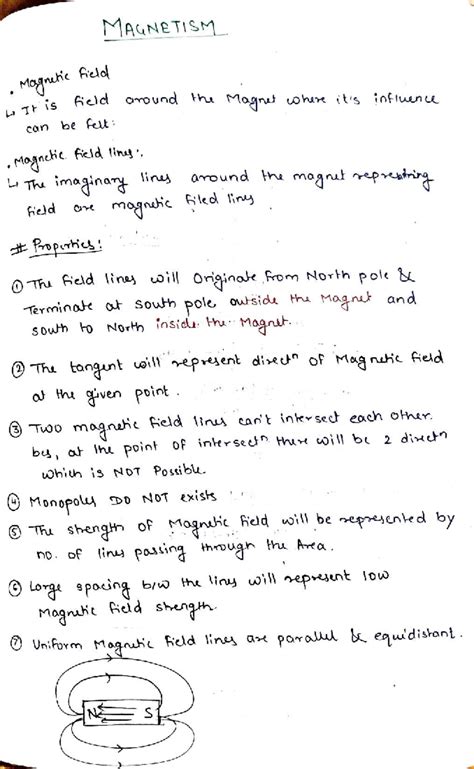 MAGNETISM
• Magnetic field
↳ It is field around the Magnet where it's influence
can be felt:
• Magnetic field lines:
↳ The imaginary lines around the magnet represtring
field are magnetic filed lines
# Properties:
① The field lines will Originate from North pole &
Terminate at south pole outside the Magnet and
south to North inside the Magnet.
② The tangent will represent directn of Magnetic field
at the given point.
③ Two magnetic field lines can't intersect each other.
bcs, at the point of intersectn there will be 2 directn
which is NOT Possible.
④ Monopoles DO NOT exists
⑤ The strength of Magnetic field will be represented by
no. of lines passing through the Area.
⑥ Large spacing b/w the lines will represent low
Magnetic field strength.
⑦ Uniform Magnetic field lines are parallel & equidistant.
N S